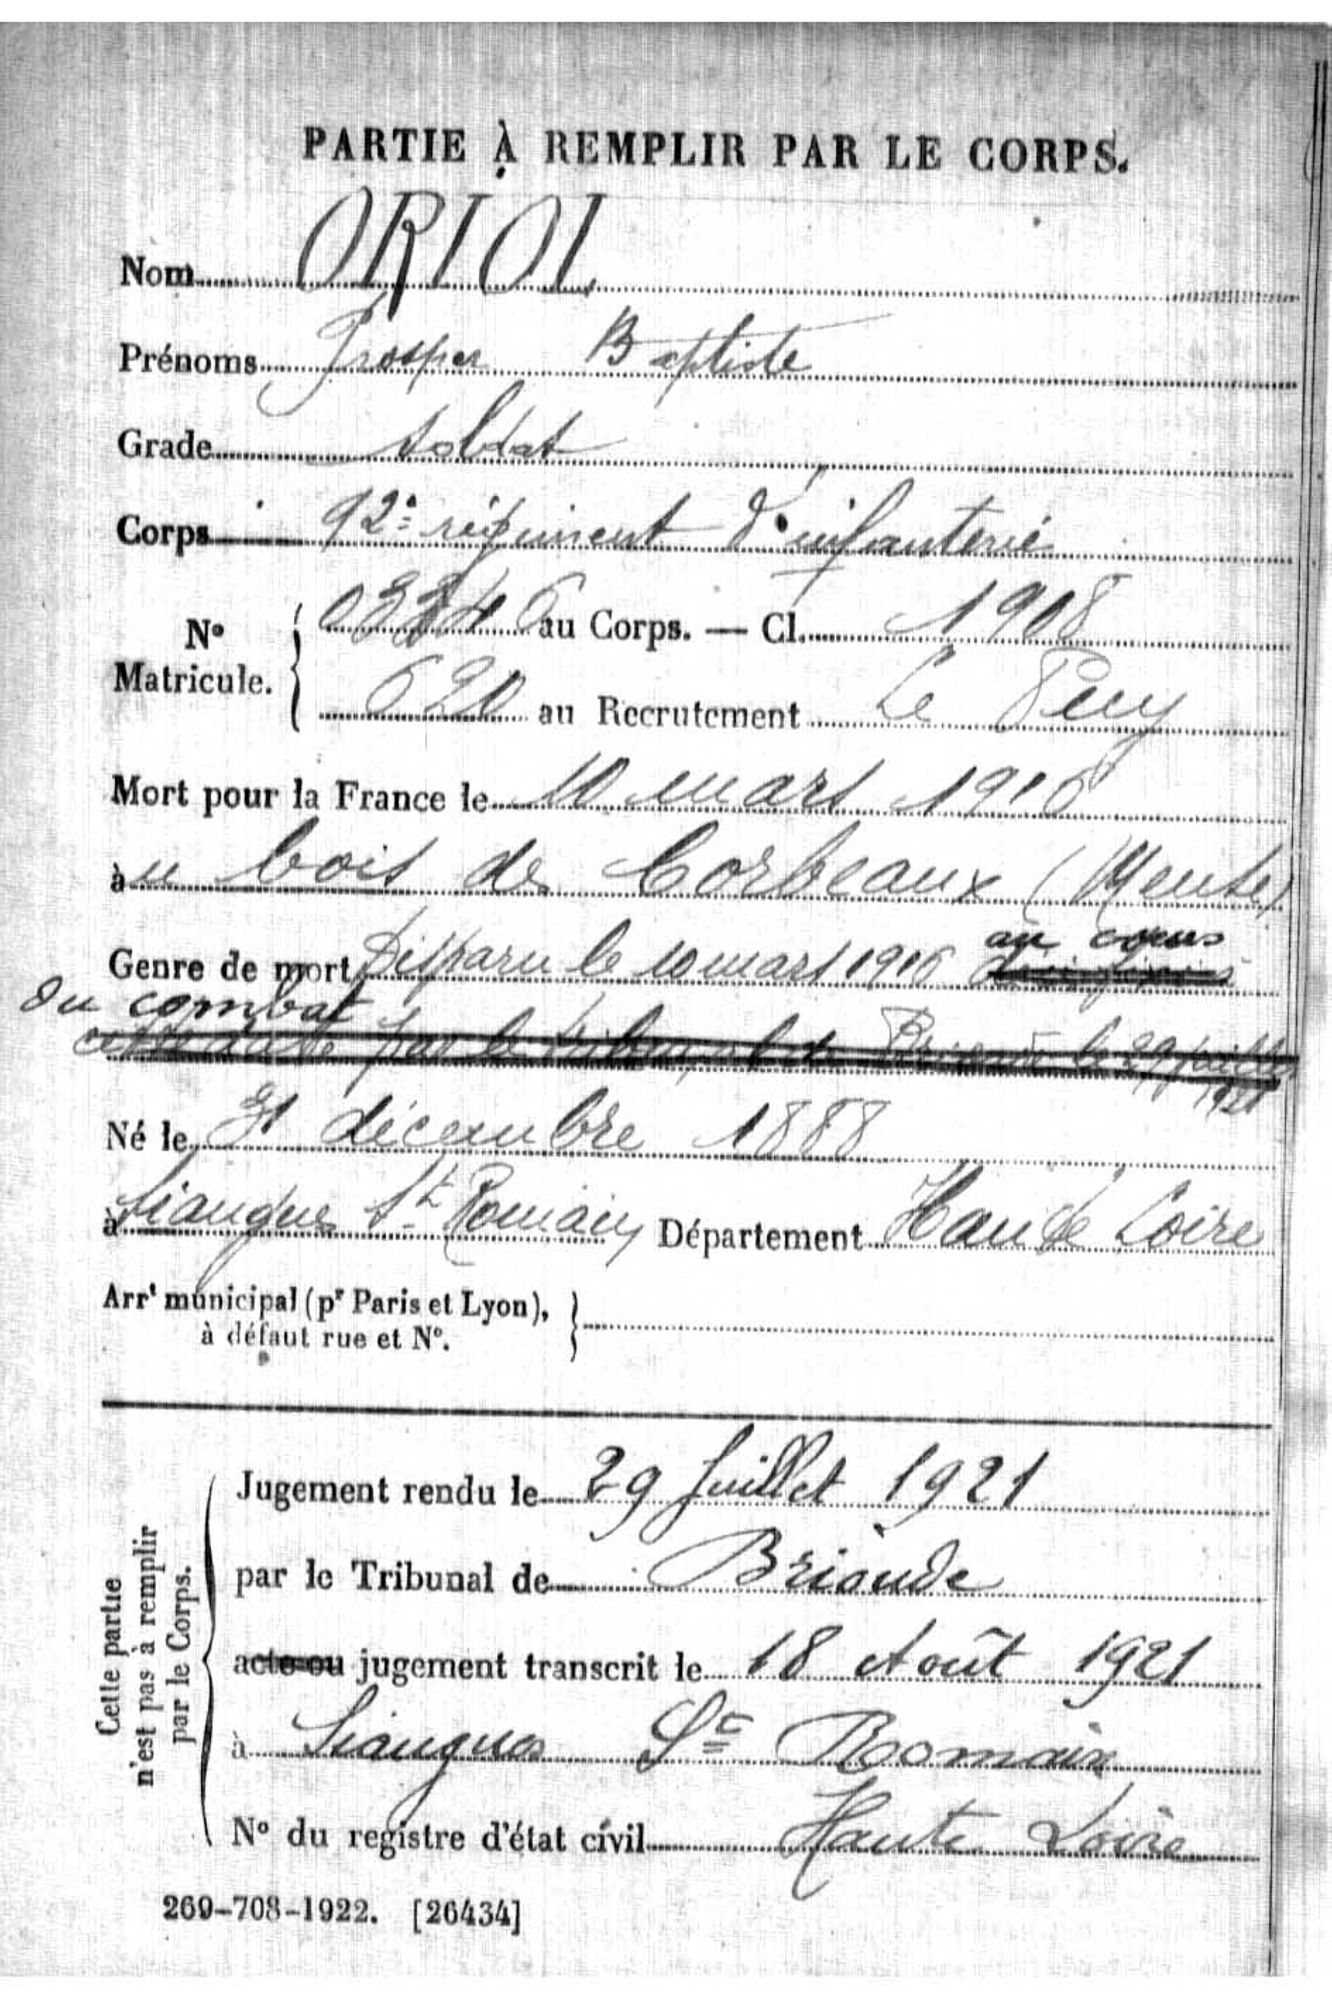 PARTIE À REMPLIR PAR LE CORPS.
Nom ORIOL
Prénoms Prosper Baptiste
Grade soldat
Corps 92e régiment d'infanterie
No Matricule. au Corps. — Cl. 1908
620 au Recrutement Le Puy
Mort pour la France le 10 mars 1916
au bois de Corbeaux (Meuse)
Genre de mort Disparu le 10 mars 1916 au cours
du combat
par le tribunal de Brioude le 29 juillet
1921
Né le 31 décembre 1888
à Siaugues St Romain Département Haute Loire
Arrt municipal (pr Paris et Lyon),
à défaut rue et No.
Cette partie
n'est pas à remplir
par le Corps.
Jugement rendu le 29 Juillet 1921
par le Tribunal de Brioude
acte ou jugement transcrit le 18 Août 1921
à Siaugues St Romain
No du registre d'état civil Haute Loire
269-708-1922. [26434]